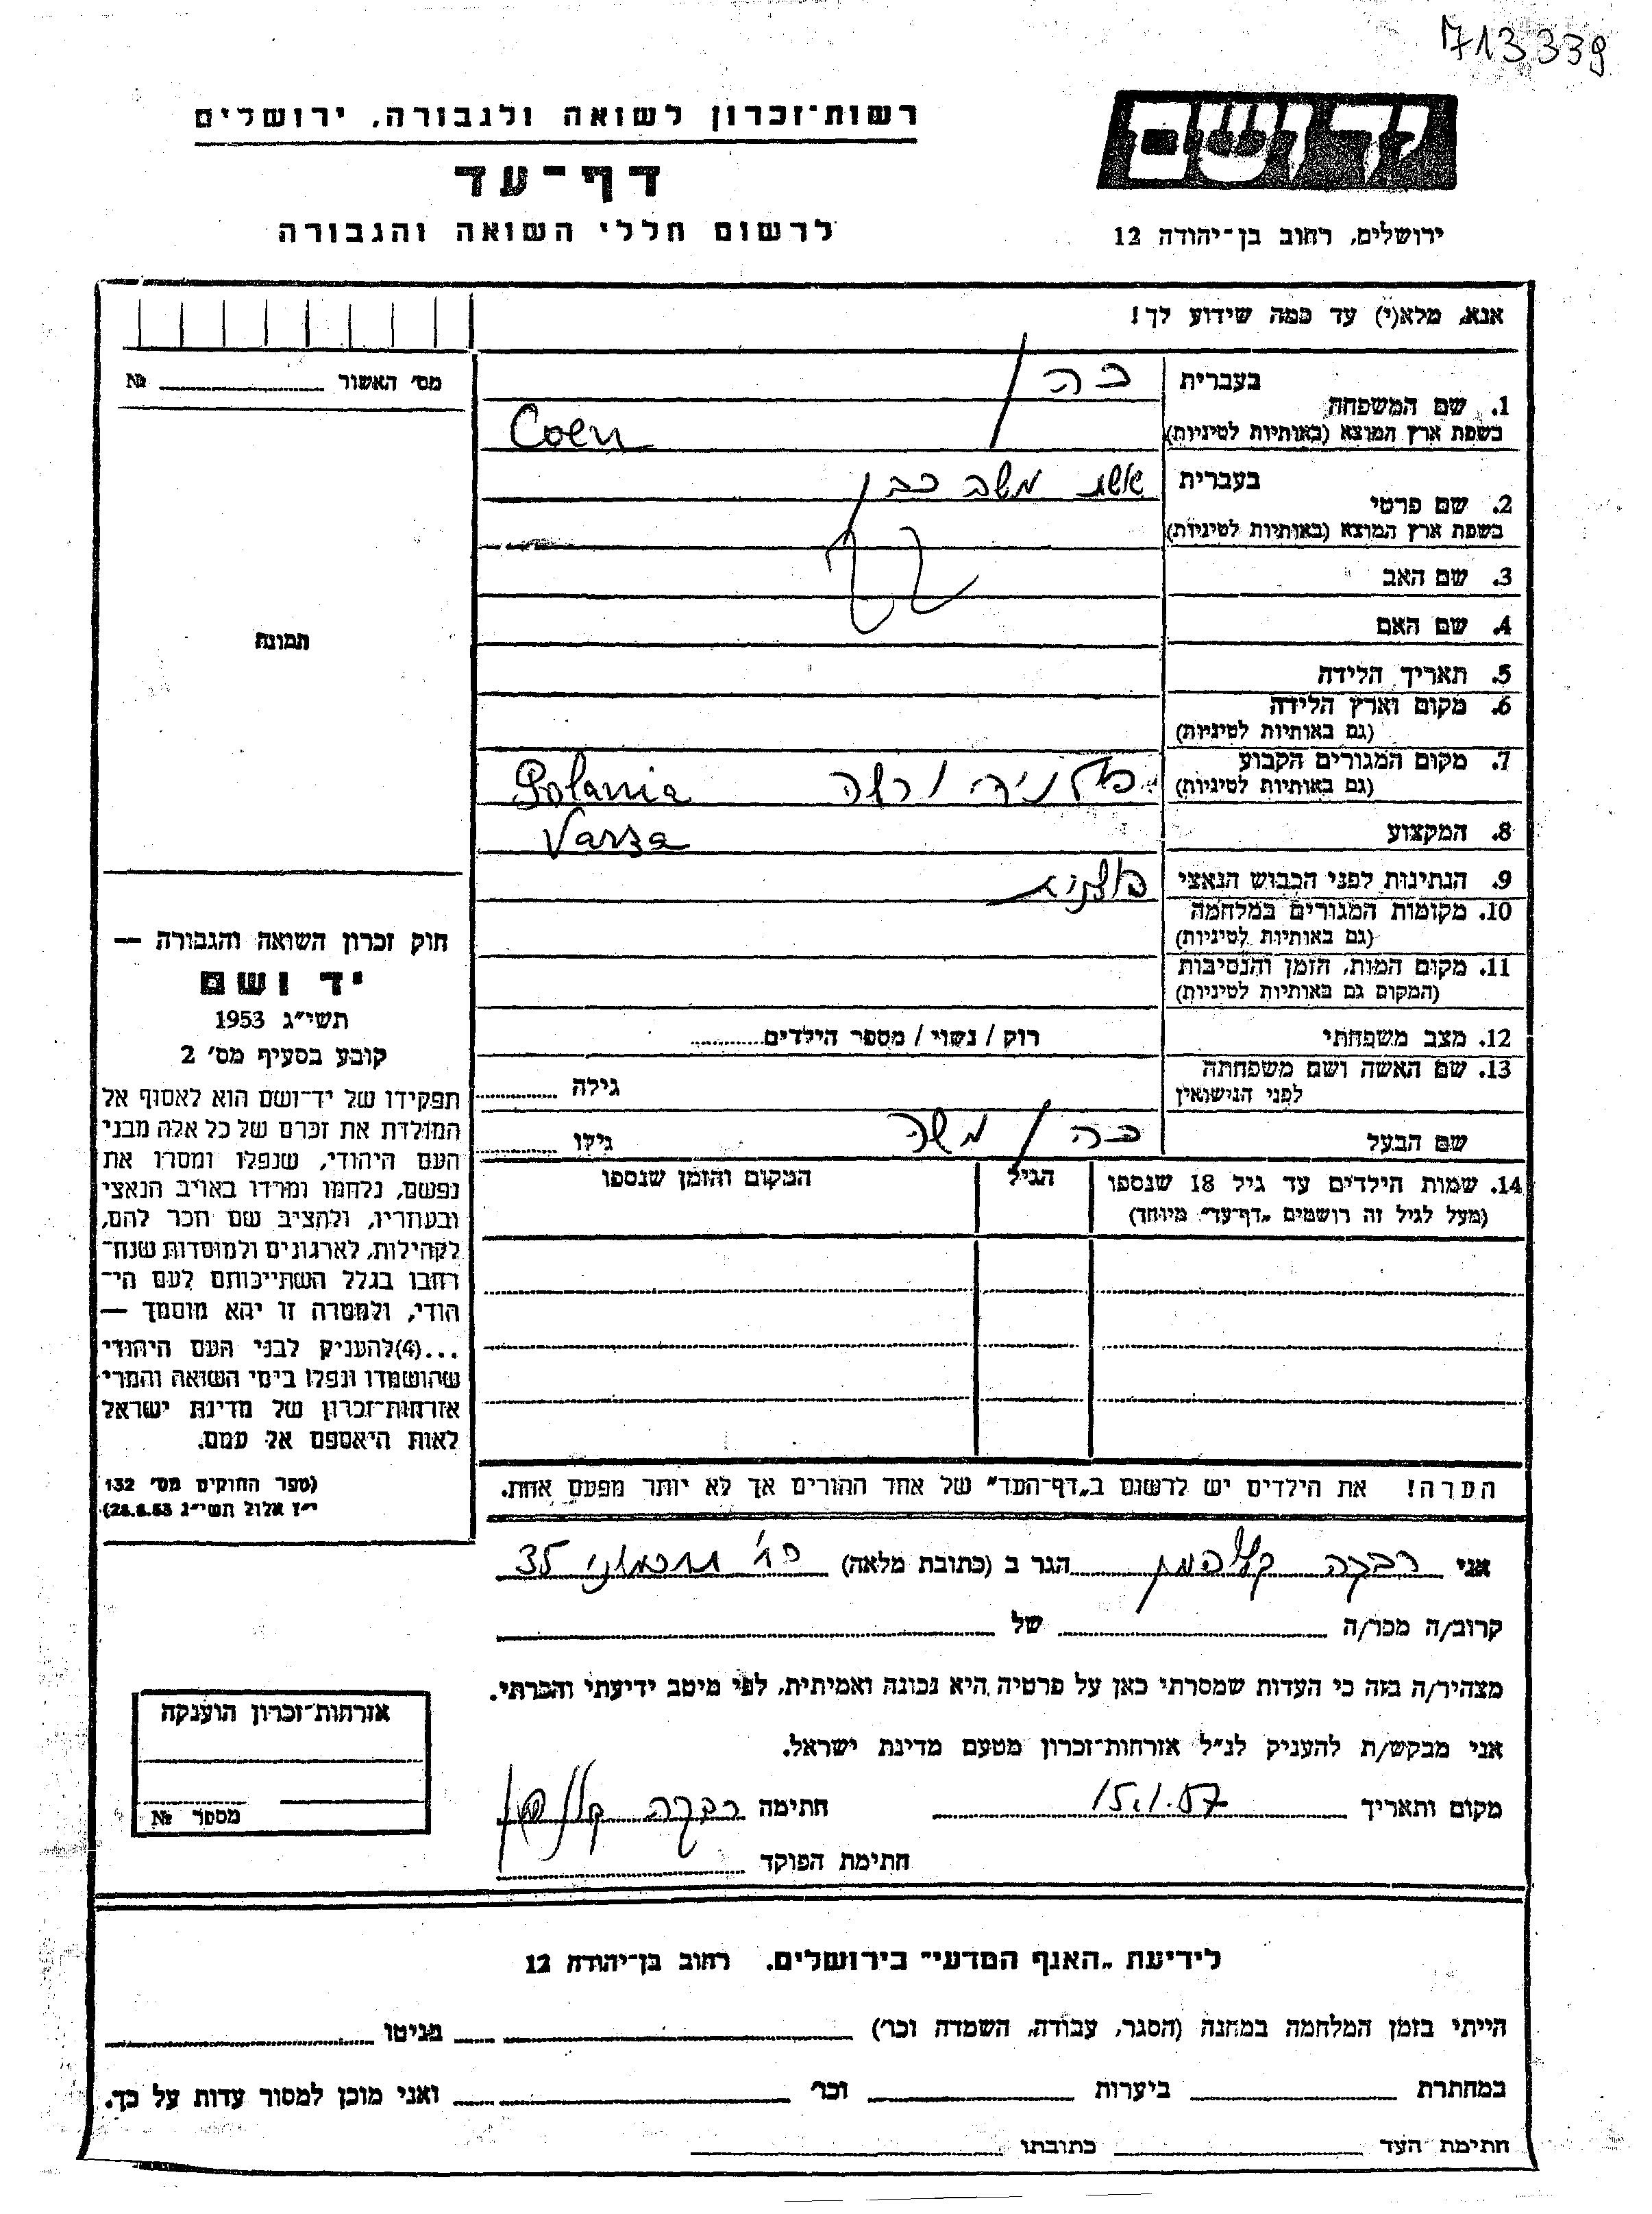 713339
רשות־זכרון לשואה ולגבורה, ירושלים
יד ושם
דף־עד
לרשום חללי השואה והגבורה
ירושלים, רחוב בן־יהודה 12
אנא, מלא(י) עד כמה שידוע לך!
מס' האשור № 
1. שם המשפחה בעברית כהן
בשפת ארץ המוצא (באותיות לטיניות) Coen
2. שם פרטי בעברית אשת משה כהן
בשפת ארץ המוצא (באותיות לטיניות)
3. שם האב
4. שם האם
תמונה
5. תאריך הלידה
6. מקום וארץ הלידה
(גם באותיות לטיניות)
7. מקום המגורים הקבוע פולניה ורשה Polania
(גם באותיות לטיניות)
8. המקצוע Varza
9. הנתינות לפני הכבוש הנאצי
10. מקומות המגורים במלחמה
(גם באותיות לטיניות)
11. מקום המות, הזמן והנסיבות
(המקום גם באותיות לטיניות)
12. מצב משפחתי רוק / נשוי / מספר הילדים
13. שם האשה ושם משפחתה
לפני הנישואין גילה
שם הבעל כהן משה גילו
14. שמות הילדים עד גיל 18 שנספו הגיל המקום והזמן שנספו
(מעל לגיל זה רושמים "דף־עד" מיוחד)
חוק זכרון השואה והגבורה —
יד ושם
תשי״ג 1953
קובע בסעיף מס' 2
תפקידו של יד־ושם הוא לאסוף אל
המולדת את זכרם של כל אלה מבני
העם היהודי, שנפלו ומסרו את
נפשם, נלחמו ומרדו באויב הנאצי
ובעוזריו, ולהציב שם וזכר להם,
לקהילות, לארגונים ולמוסדות שנח־
רחבו בגלל השתייכותם לעם הי־
הודי, ולמטרה זו יהא מוסמך —
...(4)להעניק לבני העם היהודי
שהושמדו ונפלו בימי השואה והמרי
אזרחות־זכרון של מדינת ישראל
לאות היאספם אל עמם.
(ספר החוקים מס' 132
י״ז אלול תשי״ג 28.8.53)
הערה! את הילדים יש לרשום ב„דף־העד" של אחד ההורים אך לא יותר מפעם אחת.
אני רבקה קליהמן הגר ב (כתובת מלאה) רח' חכמוני 35
קרוב/ה מכר/ה של
מצהיר/ה בזה כי העדות שמסרתי כאן על פרטיה היא נכונה ואמיתית, לפי מיטב ידיעתי והכרתי.
אני מבקש/ת להעניק לנ״ל אזרחות־זכרון מטעם מדינת ישראל.
מקום ותאריך 15.1.57 חתימה רבקה
חתימת הפוקד
אזרחות־זכרון הוענקה
מספר №
לידיעת „האגף המדעי" בירושלים. רחוב בן־יהודה 12
הייתי בזמן המלחמה במחנה (הסגר, עבודה, השמדה וכו') בגיטו
במחתרת ביערות וכו' ואני מוכן למסור עדות על כך.
חתימת העד כתובתו